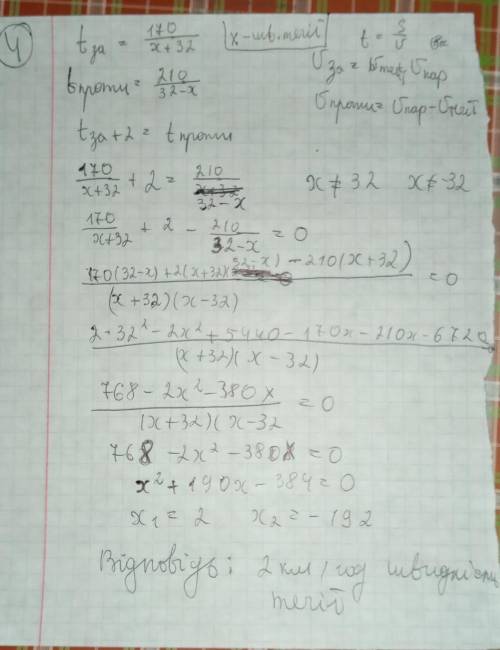 4
t за = 170/(x+32)   x - шв. течії   t = S/υ
υ за = υ теч + υ пар
t проти = 210/(32-x)
υ проти = υ пар - υ теч
t за + 2 = t проти
170/(x+32) + 2 = 210/(32-x)   x ≠ 32   x ≠ -32
170/(x+32) + 2 - 210/(32-x) = 0
(170(32-x) + 2(x+32)(32-x) - 210(x+32))/((x+32)(x-32)) = 0
(2·32² - 2x² + 5440 - 170x - 210x - 6720)/((x+32)(x-32))
(768 - 2x² - 380x)/((x+32)(x-32) = 0
768 - 2x² - 380x = 0
x² + 190x - 384 = 0
x₁ = 2   x₂ = -192
Відповідь: 2 км/год швидкість
течії